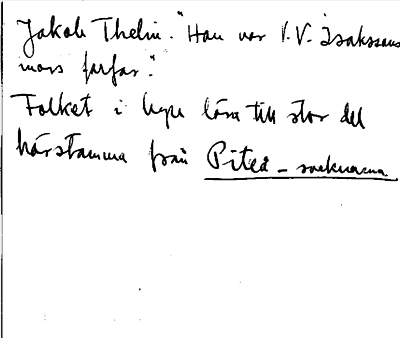 Jakob Thelin. "Han var I.V. Isakssons
mors farfar."
Folket i byn lära till stor del
härstamma från Piteå-socknarna